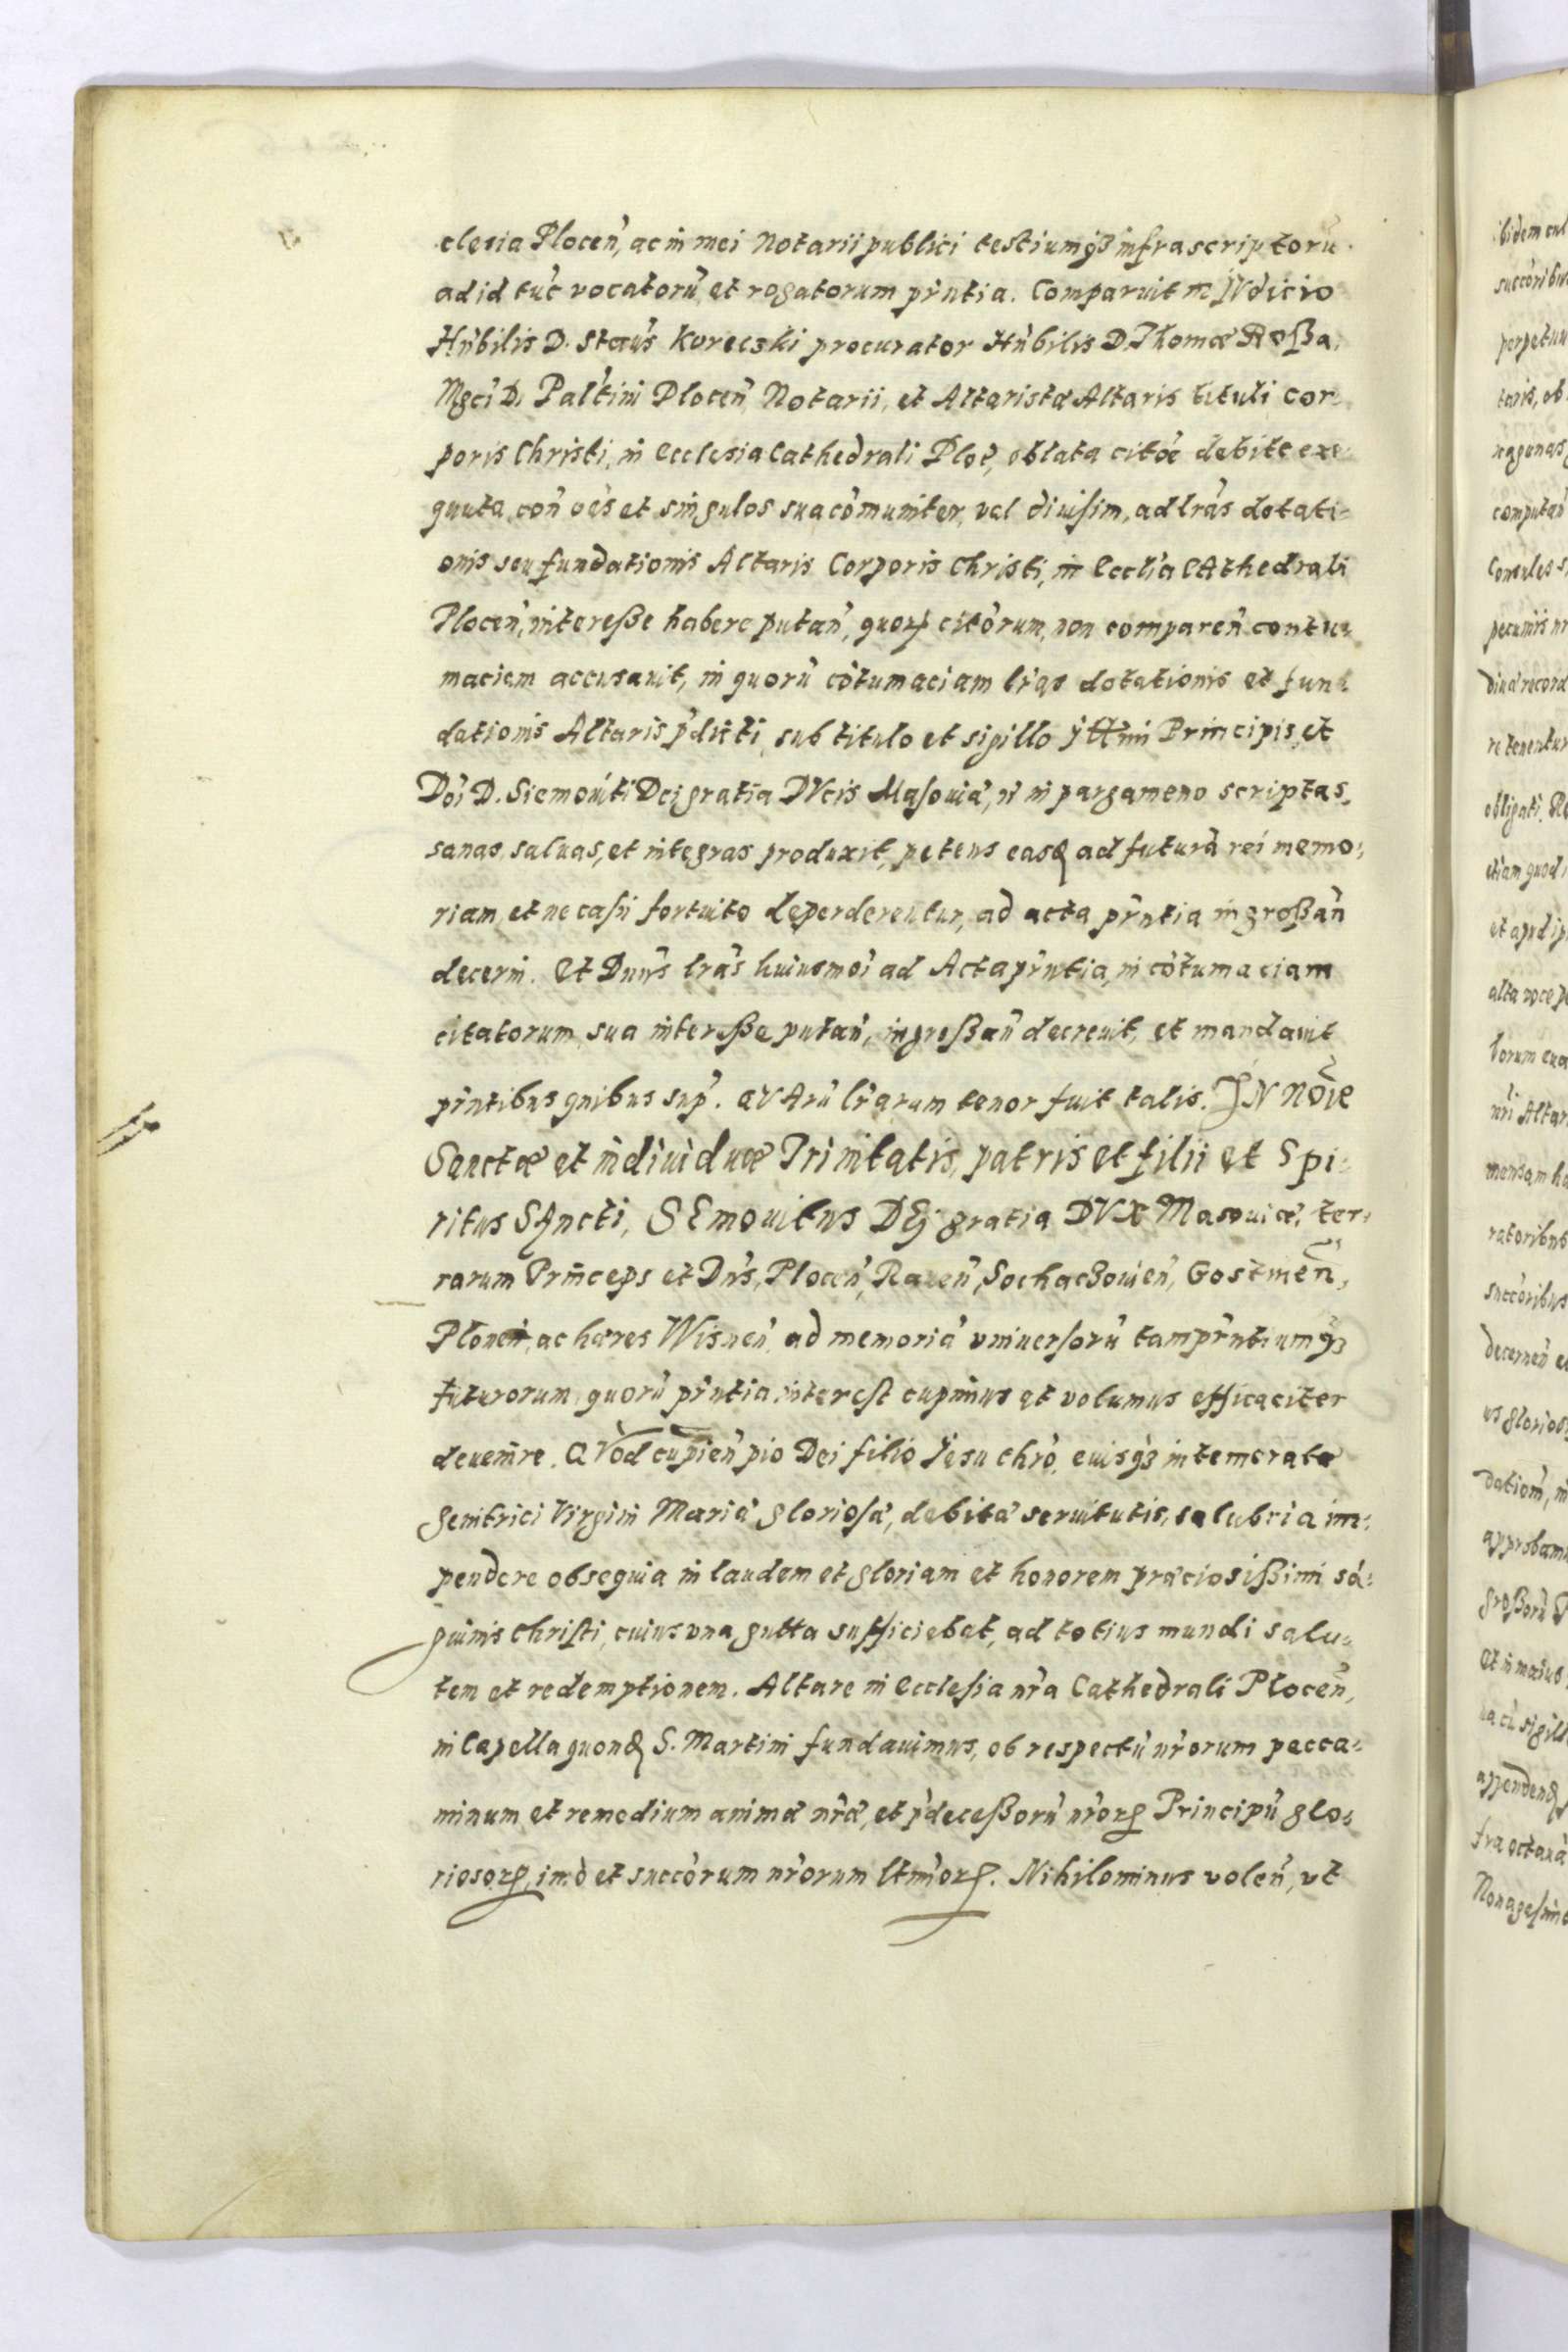 clesia Plocen̄, ac in mei Notarii publici testiumq₃ infrascriptorū
ad id tūc vocatorū et rogatorum pn̄tia. Comparuit in IVdicio
Hn̄bilis D. Staūs Kureczki procurator Hn̄bilis D. Thomæ Roßa,
Mgci D. Pal'tini Plocen̄ Notarii, et Altaristæ Altaris tituli cor
poris Christi, in Ecclesia Cathedrali Ploc̄, oblata citōe debite exe
quuta, con̄ oēs et singulos sua cōmuniter, vel diuisim, ad lrās dotati=
onis seu fundationis Altaris Corporis Christi, in Ecclīa CAthedrali
Plocen̄, intereße habere putan̄, quorꝝ citōrum, non comparen̄ contu=
maciam accusauit, in quorū cōtumaciam lrās dotationis et fun
dationis Altaris p̄dicti, sub titulo et sigillo Illmi Principis et
Dn̄i D. Siemouiti Dei gratia DVcis Masouiæ, in pargameno scriptas,
sanas, saluas, et integras produxit, petens easꝗ ad futurā rei memo=
riam, et ne casu fortuito deperderentur, ad acta pn̄tia ingroßan̄
decerni. Et Dnūs lrās huiusmōi ad Acta pn̄tia, in cōtumaciam
citatorum sua intereße putan̄, ingroßan̄ decreuit, et mandauit
pn̄tibus quibus sup̄. QVArū lrārum tenor fuit talis. IN Nōīe
Sanctæ et indiuiduæ Trinitatis, patris et filii et Spi=
ritus SAncti, SEmouitus DEI gratia DVX Masouiæ, ter=
rarum Princeps et Dn̄s, Plocen̄, Rauen̄, Sochaczouien̄, Gostinen̄,
Plonen̄, ac hæres Wisnen̄, ad memoriā vniuersorū tam pn̄tiumq₃
futurorum, quorū pn̄tia interest cupimus et volumus efficaciter
deuenire. QVod cupien̄ pio Dei filio Iesu Chrō, eiusq₃ intemeratæ
genitrici Virgini Mariæ gloriosæ, debitæ seruitutis, salubria im=
pendere obsequia in laudem et gloriam et honorem præciosißimi sā=
guinis Christi, cuius vna gutta sufficiebat, ad totius mundi salu=
tem et redemptionem. Altare in Ecclesia nrā Cathedrali Plocen̄,
in Capella quondꝗ S. Martini fundauimus, ob respectū nrōrum pecca=
minum, et remedium animæ nrǣ, et p̄deceßorū nrōrꝝ Principū glo=
riosorꝝ, imò et succōrum nrōrum ltmōrꝝ. Nihilominus volen̄, vt